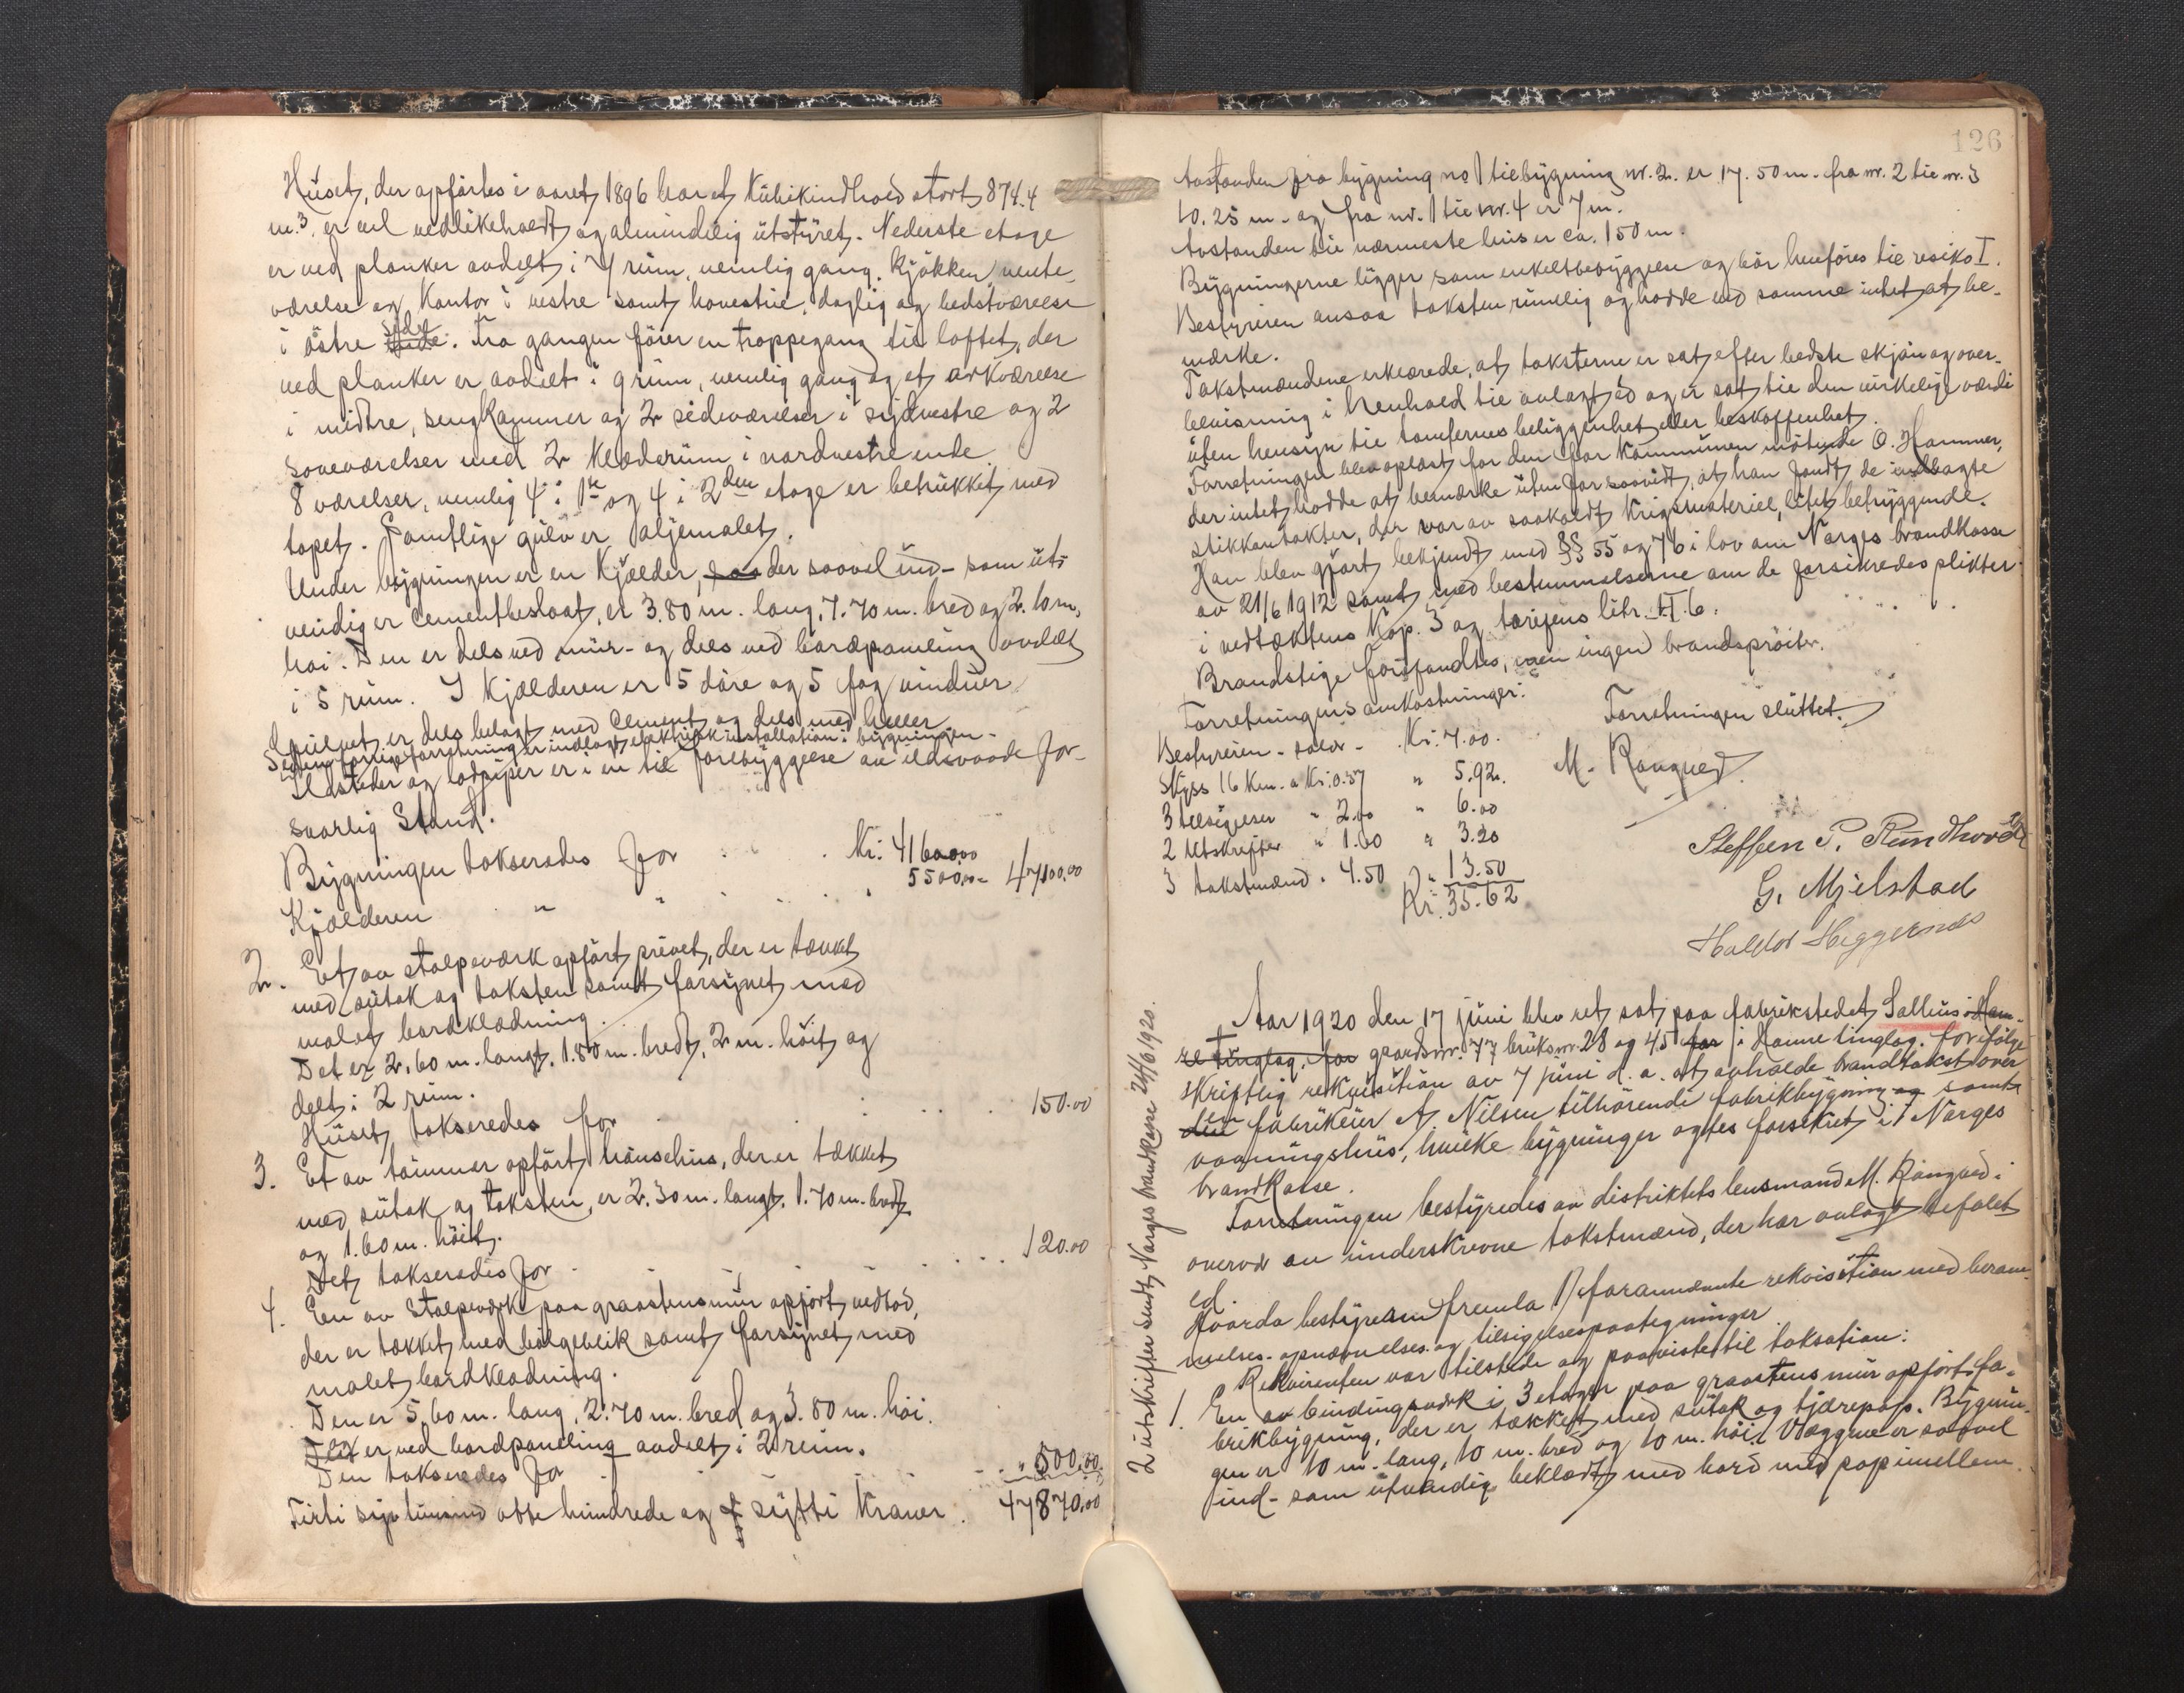 Huset, der opførtes i aaret 1896 har et Kubikindhold stort 874.4
m.³, er vel vedlikeholdt og almindelig utstyret. Nederste etage
er ved planker avdelt i 7 rum, nemlig gang, kjøkken, vente-
værelse og Kontor i vestre samt daglig og bedstværelse
i østre side. Fra gangen fører en trappegang til loftet, der
ved planker er avdelt i 9 rum, nemlig gang og et arkværelse
i midtre, sengkammer og 2 sideværelser i sydvestre og 2
soveværelser med 2 klæderum i nordvestre ende
8 værelser, nemlig 4 i 1ste og 4 i 2den etage er betrukket med
tapet. Samtlige gulv er oljemalet.
Under bygningen er en Kjælder, der saavel ind- som ut-
vendig er cementbeslaat, er 3.80 m. lang, 7.70 m. bred og 2.10 m.
høi. Den er dels ved mur- og dels ved bordpaneling avdelt
i 5 rum. I Kjælderen er 5 døre og 5 fag vinduer.
Gulvet er dels belagt med Cement og dels med heller.
Siden forrige forretning er indlagt elektrisk installation i bygningen.
Ildsteder og lodpiper er i en til forebyggelse av ildsvaade for-
svarlig Stand.
Bygningen takseredes for . . . Kr. 41600.00
Kjælderen " " . . . 5500.00 = 47100.00
2. Et av stolpeværk opført privet, der er tækket
med sutak og taksten samt forsynet med
malet bordklædning.
Det er 2.60 m. langt, 1.80 m. bredt, 2 m. høit og
delt i 2 rum.
Huset takseredes for . . . 150.00
3. Et av tømmer opført hønsehus, der er tækket
med sutak og taksten, er 2.30 m. langt, 1.70 m. bredt
og 1.60 m. høit.
Det takseredes for . . . 120.00
4. En av Stolpeværk paa graastensmur opført vedbod,
der er tækket med bølgeblik samt forsynet med
malet bordklædning.
Den er 5.60 m. lang, 2.70 m. bred og 3.80 m. høi.
Den er ved bordpaneling avdelt i 2 rum.
Den takseredes for . . . " 500.00
Førti syv tusind otte hundrede og sytti Kroner. 47870.00
126
Avstanden fra bygning no 1 til bygning nr. 2. er 17.50 m. fra nr. 2 til nr. 3
10.25 m. og fra nr. 1 til nr. 4 er 7 m.
Avstanden til nærmeste hus er ca. 150 m.
Bygningerne ligger som enkeltbebyggelse og bør henføres til risiko I.
Bestyreren ansaa taksten rimelig og hadde ved samme intet at be-
mærke.
Takstmændene erklærede, at taksterne er sat efter bedste skjøn og over-
bevisning i henhold til avlagt ed og er sat til den virkelige værdi
uten hensyn til tomternes beliggenhet eller beskaffenhet.
Forretningen blev oplæst for den for Kommunen møtende O. Hammer,
der intet hadde at bemærke uten forsaavidt, at han fandt de indlagte
stikkontakter, der var av saakaldt Krigsmateriel, litet betryggende.
Han blev gjort bekjendt med §§ 55 og 76 i lov om Norges brandkasse
av 21/6 1912 samt med bestemmelserne om de forsikredes plikter
i vedtæktens Kap. 3 og tarifens litr. H. 6.
Brandstige forefandtes, men ingen brandsprøiter.
Forretningens omkostninger:
Forretningen sluttet.
Bestyreren - salær - Kr. 7.00.
Skyss 16 Km. a Kr. 0.37 " 5.92.
3 tilsigelser " 2.00 " 6.00
2 Utskrifter " 1.60 " 3.20
3 takstmænd " 4.50 " 13.50
Kr. 35.62
M. Rongved
Steffen P. Rundhovde
G. Mjelstad
Haldor Heggernes
2 utskrifter sendt Norges brandkasse 24/6 1920.
Aar 1920 den 17 juni blev ret sat paa fabrikstedet Salhus i Ham-
re tinglag, for gaardsnr. 77 bruksnr. 28 og 45 for i Hamre tinglag. for ifølge
skriftlig rekvisition av 7 juni d. a. at avholde brandtakst over
den fabrikeier A. Nilsen tilhørende fabrikbygning og samt
vaaningshus, hvilke bygninger agtes forsikret i Norges
brandkasse.
Forretningen bestyredes av distriktets lensmand M. Rongved i
overvær av underskrevne takstmænd, der har avlagt befalet
ed.
Hvorda bestyreren fremla 1) forannævnte rekvisition med beram-
melses- opnævnelses- og tilsigelsespaategninger
Rekvirenten var tilstede og paaviste til taksation:
1. En av bindingsverk i 3 etager paa graastens mur opført fa-
brikbygning, der er tækket med sutak og tjærepap. Bygnin-
gen er 10 m. lang, 10 m. bred og 10 m. høi. Væggene er saavel
ind- som utvendig beklædt med bord med pap imellem.